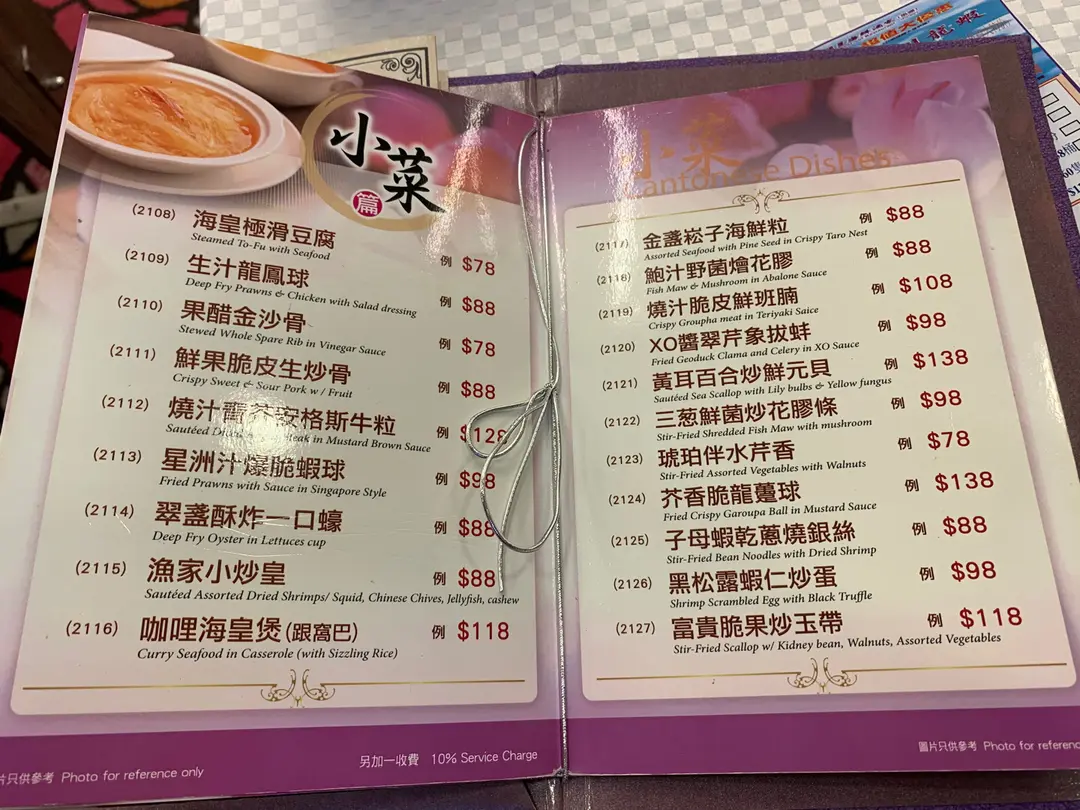 小菜
篇
(2108) 海皇極滑豆腐 例 $78
Steamed To-Fu with Seafood
(2109) 生汁龍鳳球 例 $88
Deep Fry Prawns & Chicken with Salad dressing
(2110) 果醋金沙骨 例 $78
Stewed Whole Spare Rib in Vinegar Sauce
(2111) 鮮果脆皮生炒骨 例 $88
Crispy Sweet & Sour Pork w/ Fruit
(2112) 燒汁 安格斯牛粒 例 $128
Sautéed in Mustard Brown Sauce
(2113) 星洲汁爆脆蝦球 例 $98
Fried Prawns with Sauce in Singapore Style
(2114) 翠盞酥炸一口蠔 例 $88
Deep Fry Oyster in Lettuces cup
(2115) 漁家小炒皇 例 $88
Sautéed Assorted Dried Shrimps/ Squid, Chinese Chives, Jellyfish, cashew
(2116) 咖哩海皇煲(跟窩巴) 例 $118
Curry Seafood in Casserole (with Sizzling Rice)
另加一收費 10% Service Charge
片只供參考 Photo for reference only
小菜
Cantonese Dishes
(2117) 金盞崧子海鮮粒 例 $88
Assorted Seafood with Pine Seed in Crispy Taro Nest
(2118) 鮑汁野菌燴花膠 例 $88
Fish Maw & Mushroom in Abalone Sauce
(2119) 燒汁脆皮鮮班腩 例 $108
Crispy Groupha meat in Teriyaki Saice
(2120) XO醬翠芹象拔蚌 例 $98
Fried Geoduck Clama and Celery in XO Sauce
(2121) 黃耳百合炒鮮元貝 例 $138
Sautéed Sea Scallop with Lily bulbs & Yellow fungus
(2122) 三葱鮮菌炒花膠條 例 $98
Stir-Fried Shredded Fish Maw with mushroom
(2123) 琥珀伴水芹香 例 $78
Stir-Fried Assorted Vegetables with Walnuts
(2124) 芥香脆龍躉球 例 $138
Fried Crispy Garoupa Ball in Mustard Sauce
(2125) 子母蝦乾蔥燒銀絲 例 $88
Stir-Fried Bean Noodles with Dried Shrimp
(2126) 黑松露蝦仁炒蛋 例 $98
Shrimp Scrambled Egg with Black Truffle
(2127) 富貴脆果炒玉帶 例 $118
Stir-Fried Scallop w/ Kidney bean, Walnuts, Assorted Vegetables
圖片只供參考 Photo for referenc